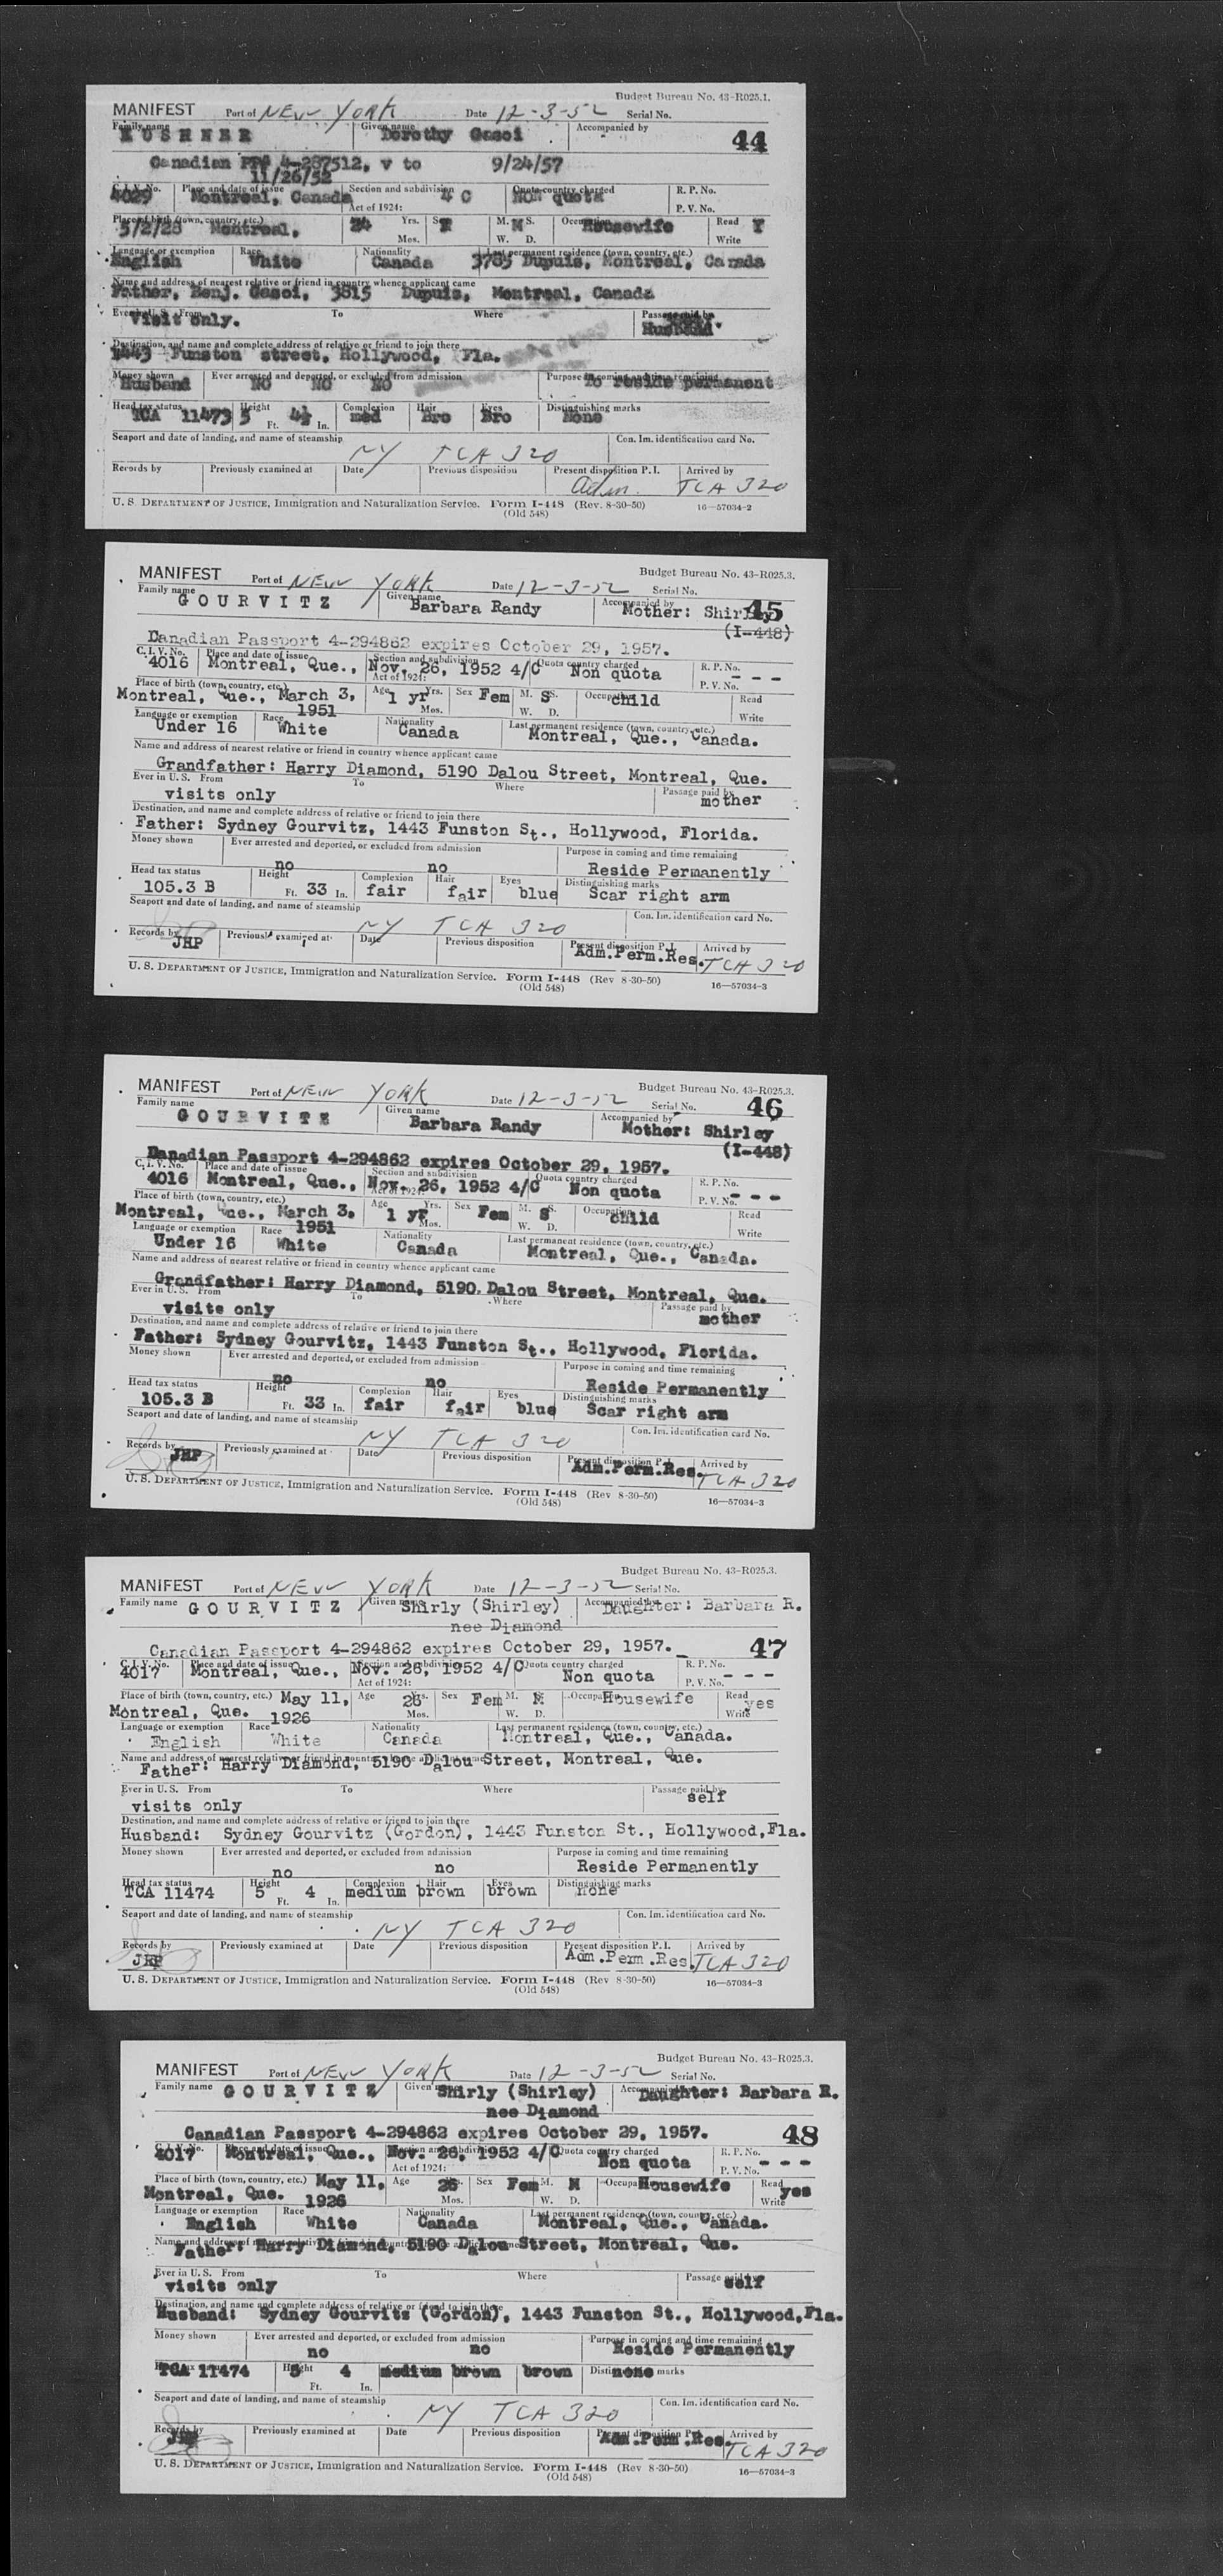 Budget Bureau No. 43-R025.1.
MANIFEST Port of NEW YORK Date 12-3-52 Serial No.
Family name KUSHNER Given name Dorothy Gasoi Accompanied by 44
Canadian PP# 4-287512, v to 9/24/57
11/26/52
C.I.V. No. 4029 Place and date of issue Montreal, Canada Section and subdivision Act of 1924: 4 C Quota country charged NON quota R. P. No. P. V. No.
Place of birth (town, country, etc.) 5/2/28 Montreal, 24 Yrs. Mos. Sex F M. S. W. D. M Occupation Housewife Read Write Y
Language or exemption English Race White Nationality Canada Last permanent residence (town, country, etc.) 3785 Dupuis, Montreal, Canada
Name and address of nearest relative or friend in country whence applicant came
Father, Benj. Gasoi, 3815 Dupuis, Montreal, Canada
Ever in U.S. From To Where Passage paid by
Visit only. Husband
Destination, and name and complete address of relative or friend to join there
1443 Funston street, Hollywood, Fla.
Money shown Husband Ever arrested and deported, or excluded from admission NO NO NO Purpose in coming and time remaining To reside permanent
Head tax status TCA 11473 Height 5 Ft. 4½ In. Complexion med Hair Bro Eyes Bro Distinguishing marks None
Seaport and date of landing, and name of steamship NY TCA 320 Con. Im. identification card No.
Records by Previously examined at Date Previous disposition Present disposition P. I. Adm. Arrived by TCA 320
U. S. DEPARTMENT OF JUSTICE, Immigration and Naturalization Service. Form I-448 (Rev. 8-30-50) 16—57034-2
(Old 548)
Budget Bureau No. 43-R025.3.
MANIFEST Port of NEW YORK Date 12-3-52 Serial No.
Family name GOURVITZ Given name Barbara Randy Accompanied by Mother: Shirley 45
(I-448)
Canadian Passport 4-294862 expires October 29, 1957.
C. I. V. No. 4016 Place and date of issue Montreal, Que., Section and subdivision Act of 1924: Nov. 26, 1952 4/C Quota country charged Non quota R. P. No. P. V. No. - - -
Place of birth (town, country, etc.) Montreal, Que., March 3, 1951 Age 1 yr Yrs. Mos. Sex Fem M. S. W. D. S Occupation child Read Write
Language or exemption Under 16 Race White Nationality Canada Last permanent residence (town, country, etc.) Montreal, Que., Canada.
Name and address of nearest relative or friend in country whence applicant came
Grandfather: Harry Diamond, 5190 Dalou Street, Montreal, Que.
Ever in U. S. From To Where Passage paid by
visits only mother
Destination, and name and complete address of relative or friend to join there
Father: Sydney Gourvitz, 1443 Funston St., Hollywood, Florida.
Money shown Ever arrested and deported, or excluded from admission no no Purpose in coming and time remaining Reside Permanently
Head tax status 105.3 B Height Ft. 33 In. Complexion fair Hair fair Eyes blue Distinguishing marks Scar right arm
Seaport and date of landing, and name of steamship NY TCA 320 Con. Im. identification card No.
Records by JHP Previously examined at Date Previous disposition Present disposition P. I. Adm.Perm.Res. Arrived by TCA 320
U. S. DEPARTMENT OF JUSTICE, Immigration and Naturalization Service. Form I-448 (Rev 8-30-50) 16—57034-3
(Old 548)
Budget Bureau No. 43-R025.3.
MANIFEST Port of NEW YORK Date 12-3-52 Serial No. 46
Family name GOURVITZ Given name Barbara Randy Accompanied by Mother: Shirley
(I-448)
Canadian Passport 4-294862 expires October 29, 1957.
C. I. V. No. 4016 Place and date of issue Montreal, Que., Section and subdivision Act of 1924: Nov. 26, 1952 4/C Quota country charged Non quota R. P. No. P. V. No. - - -
Place of birth (town, country, etc.) Montreal, Que., March 3, 1951 Age 1 yr Yrs. Mos. Sex Fem M. S. W. D. S Occupation child Read Write
Language or exemption Under 16 Race White Nationality Canada Last permanent residence (town, country, etc.) Montreal, Que., Canada.
Name and address of nearest relative or friend in country whence applicant came
Grandfather: Harry Diamond, 5190 Dalou Street, Montreal, Que.
Ever in U. S. From To Where Passage paid by
visits only mother
Destination, and name and complete address of relative or friend to join there
Father: Sydney Gourvitz, 1443 Funston St., Hollywood, Florida.
Money shown Ever arrested and deported, or excluded from admission no no Purpose in coming and time remaining Reside Permanently
Head tax status 105.3 B Height Ft. 33 In. Complexion fair Hair fair Eyes blue Distinguishing marks Scar right arm
Seaport and date of landing, and name of steamship NY TCA 320 Con. Im. identification card No.
Records by JHP Previously examined at Date Previous disposition Present disposition P. I. Adm.Perm.Res. Arrived by TCA 320
U. S. DEPARTMENT OF JUSTICE, Immigration and Naturalization Service. Form I-448 (Rev 8-30-50) 16—57034-3
(Old 548)
Budget Bureau No. 43-R025.3.
MANIFEST Port of NEW YORK Date 12-3-52 Serial No.
Family name GOURVITZ Given name Shirly (Shirley) Accompanied by Daughter: Barbara R.
nee Diamond
Canadian Passport 4-294862 expires October 29, 1957. 47
C. I. V. No. 4017 Place and date of issue Montreal, Que., Section and subdivision Act of 1924: Nov. 26, 1952 4/C Quota country charged Non quota R. P. No. P. V. No. - - -
Place of birth (town, country, etc.) May 11, 1926 Montreal, Que. Age 26 Yrs. Mos. Sex Fem M. S. W. D. M Occupation Housewife Read Write yes
Language or exemption English Race White Nationality Canada Last permanent residence (town, country, etc.) Montreal, Que., Canada.
Name and address of nearest relative or friend in country whence applicant came
Father: Harry Diamond, 5190 Dalou Street, Montreal, Que.
Ever in U. S. From To Where Passage paid by
visits only self
Destination, and name and complete address of relative or friend to join there
Husband: Sydney Gourvitz (Gordon), 1443 Funston St., Hollywood,Fla.
Money shown Ever arrested and deported, or excluded from admission no no Purpose in coming and time remaining Reside Permanently
Head tax status TCA 11474 Height 5 Ft. 4 In. Complexion medium Hair brown Eyes brown Distinguishing marks none
Seaport and date of landing, and name of steamship NY TCA 320 Con. Im. identification card No.
Records by JHP Previously examined at Date Previous disposition Present disposition P. I. Adm.Perm.Res. Arrived by TCA 320
U. S. DEPARTMENT OF JUSTICE, Immigration and Naturalization Service. Form I-448 (Rev 8-30-50) 16—57034-3
(Old 548)
Budget Bureau No. 43-R025.3.
MANIFEST Port of NEW YORK Date 12-3-52 Serial No.
Family name GOURVITZ Given name Shirly (Shirley) Accompanied by Daughter: Barbara R.
nee Diamond
Canadian Passport 4-294862 expires October 29, 1957. 48
C. I. V. No. 4017 Place and date of issue Montreal, Que., Section and subdivision Act of 1924: Nov. 26, 1952 4/C Quota country charged Non quota R. P. No. P. V. No. - - -
Place of birth (town, country, etc.) May 11, 1926 Montreal, Que. Age 26 Yrs. Mos. Sex Fem M. W. D. M Occupation Housewife Read Write yes
Language or exemption English Race White Nationality Canada Last permanent residence (town, country, etc.) Montreal, Que., Canada.
Name and address of nearest relative or friend in country whence applicant came
Father: Harry Diamond, 5190 Dalou Street, Montreal, Que.
Ever in U. S. From To Where Passage paid by
visits only self
Destination, and name and complete address of relative or friend to join there
Husband: Sydney Gourvitz (Gordon), 1443 Funston St., Hollywood,Fla.
Money shown Ever arrested and deported, or excluded from admission no no Purpose in coming and time remaining Reside Permanently
TCA 11474 Height 5 Ft. 4 In. medium brown brown Distinguishing marks none
Seaport and date of landing, and name of steamship NY TCA 320 Con. Im. identification card No.
Records by JHP Previously examined at Date Previous disposition Present disposition P. I. Adm.Perm.Res. Arrived by TCA 320
U. S. DEPARTMENT OF JUSTICE, Immigration and Naturalization Service. Form I-448 (Rev 8-30-50) 16—57034-3
(Old 548)